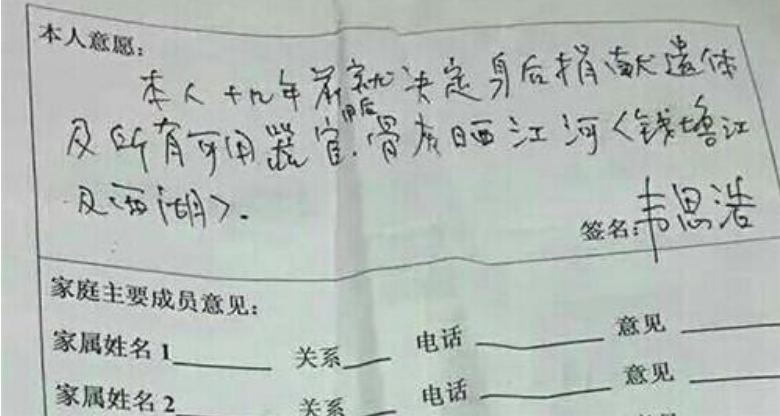 本人意愿：
本人十九年前就决定身后捐献遗体
及所有可用器官.用后骨灰晒江河<钱塘江
及西湖>.
签名：韦思浩
家庭主要成员意见：
家属姓名 1 关系 电话 意见
家属姓名 2 关系 电话 意见